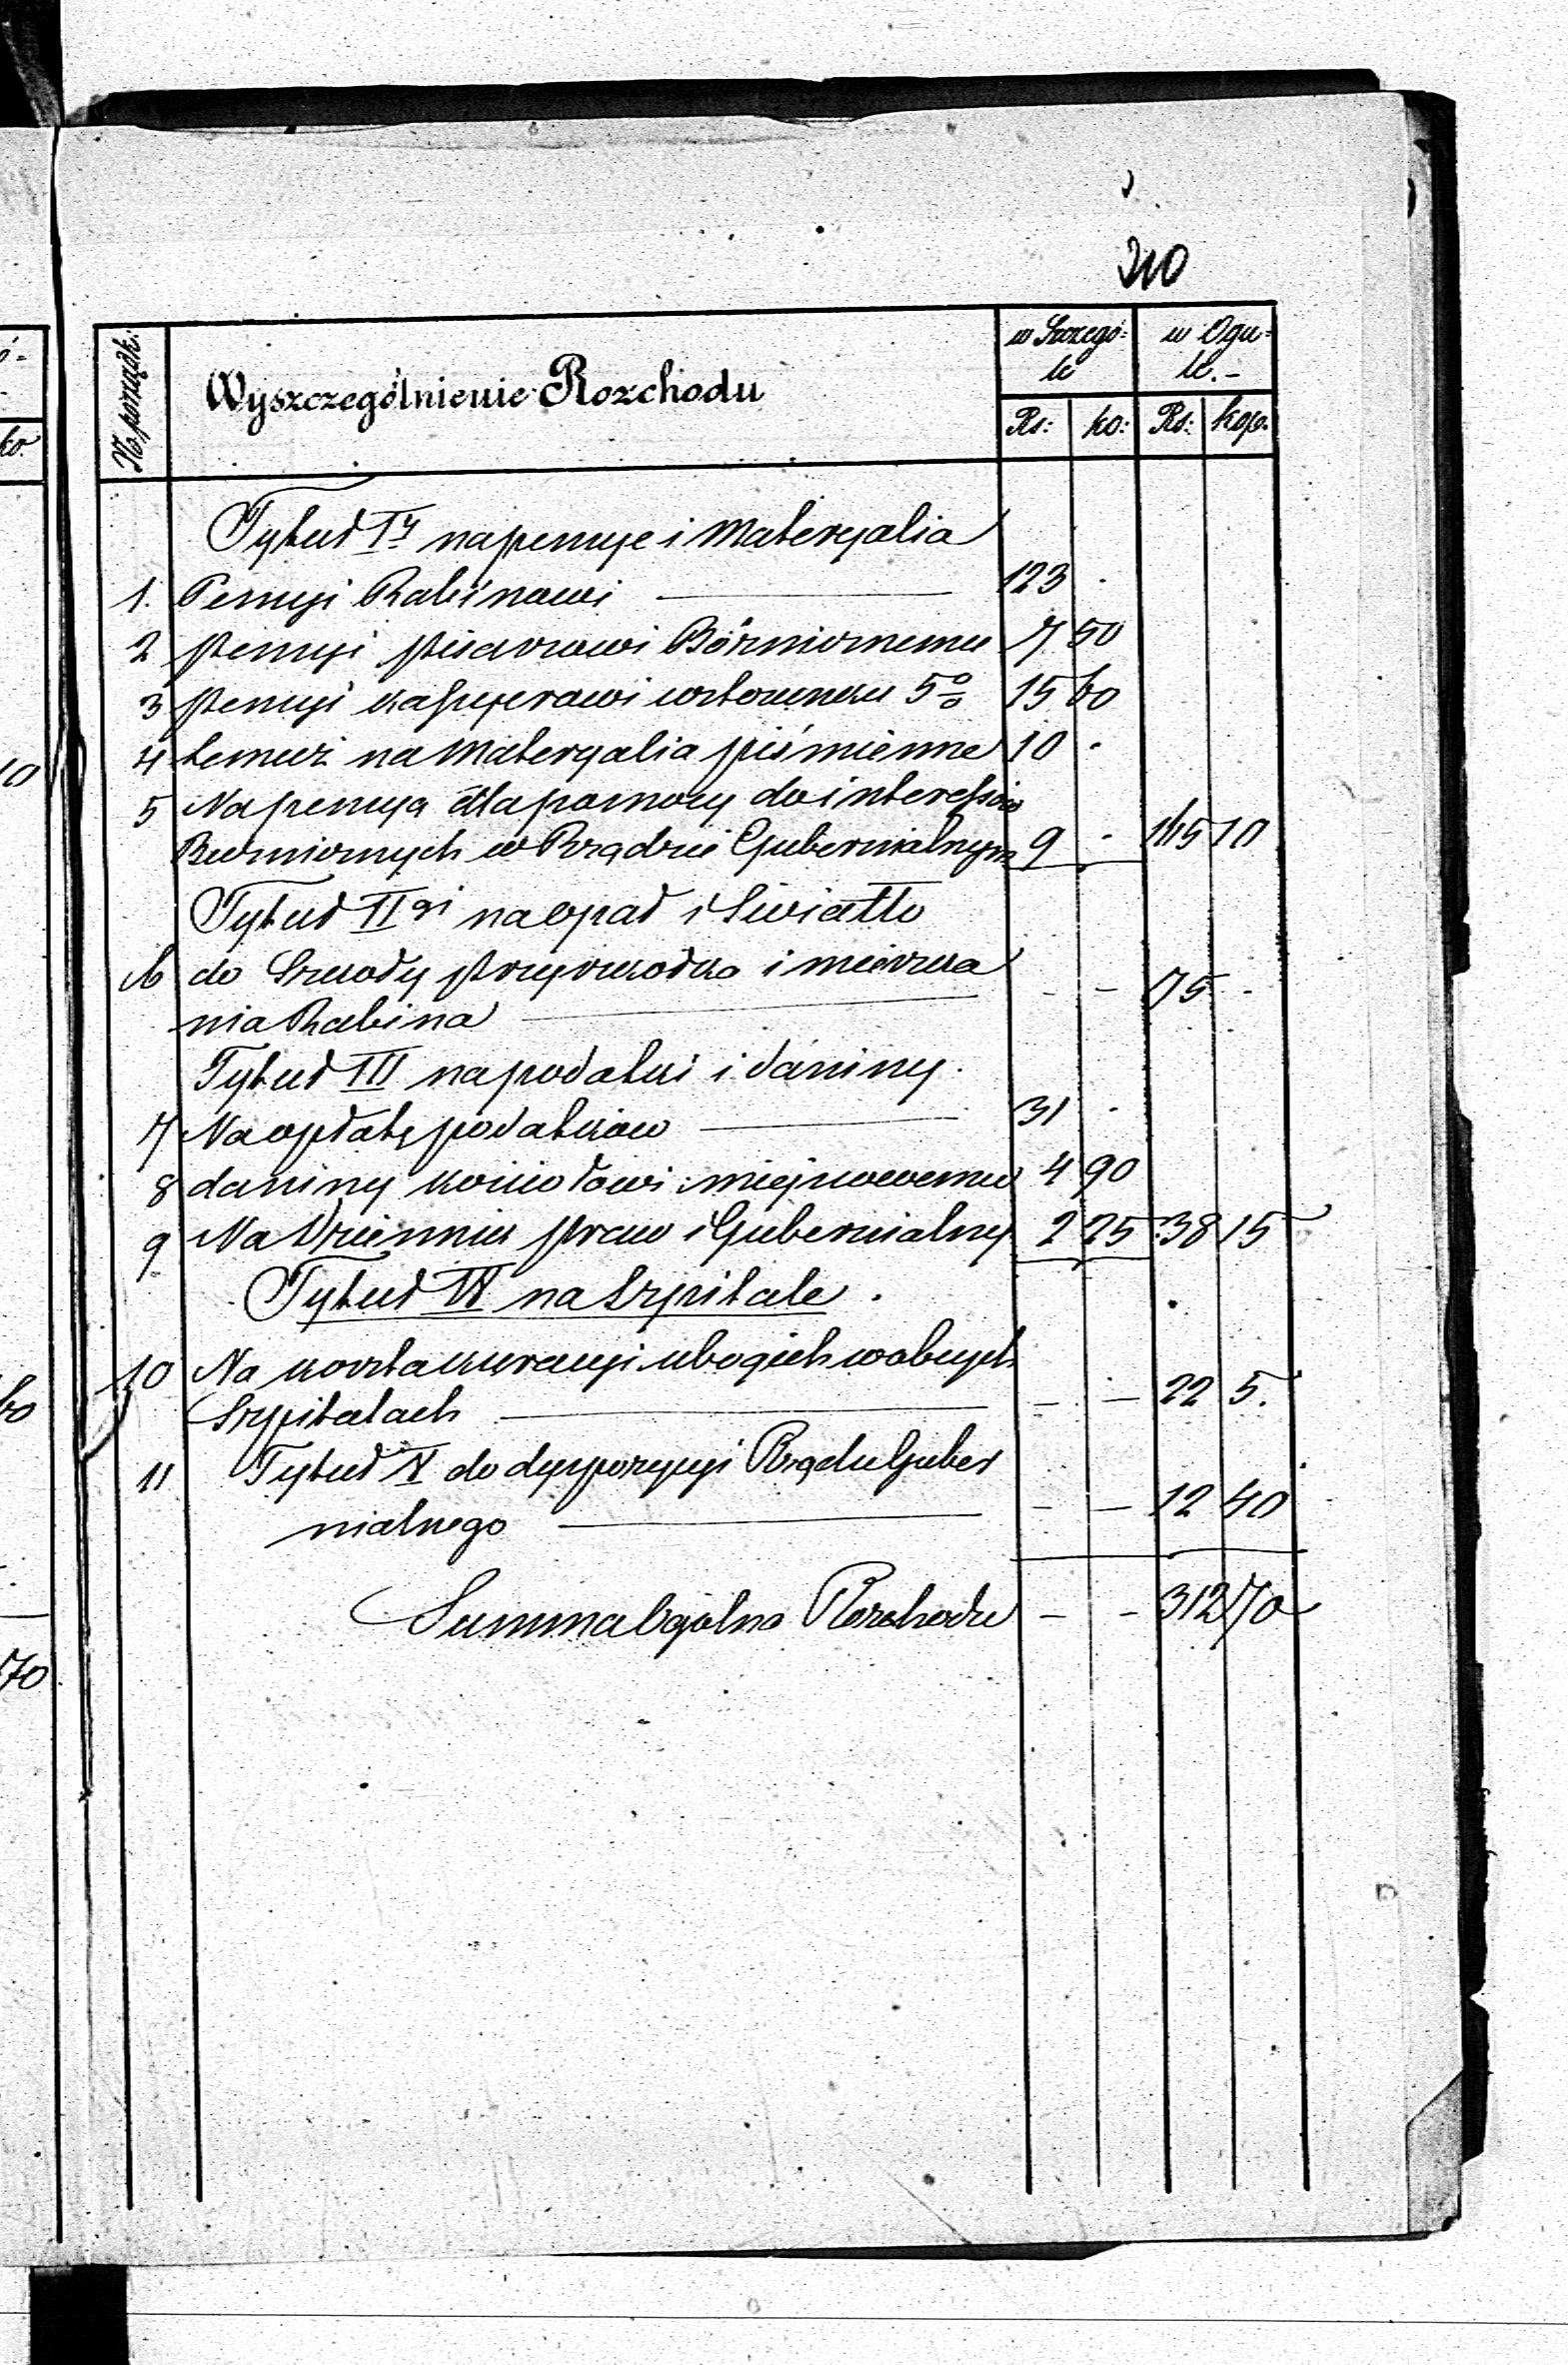 210
№ porządk:
Wyszczególnienie Rozchodu
w Szczegó=
le
w Ogu=
le.-
Rs: ko: Rs: kop.
Tytuł Iy na pensye i Materyalia
1. Pensyi Rabinowi 123 -
2 pensyi pisarzowi Bóżnicznemu 7 50
3 pensyi kassyerowi w stosunku 5% 15 60
4 temuż na Materyalia piśmienne 10 -
5 Na pensyą dla pomocy do interessów
Bużnicznych w Rządzie Gubernialnym 9 - 165 10
Tytuł IIgi na opał i Swiatło
6 do Szkoły przyszkółka i mieszka
nia Rabina - - 75 -
Tytuł III na podatki i daniny.
7 Na opłatę podatków 31 -
8 daniny kościołowi miejscowemu 4 90
9 Na Dziennik praw i Gubernialny 2 25 38 15
Tytuł IV na Szpitale.
10 Na koszta kuracyi ubogich w obcych
Szpitalach - - 22 5.
11 Tytuł V do dyspozycyi Rządu Guber
nialnego - - 12 40
Summa Ogólna Rozchodu - - 312 70
ko.
10
60
70